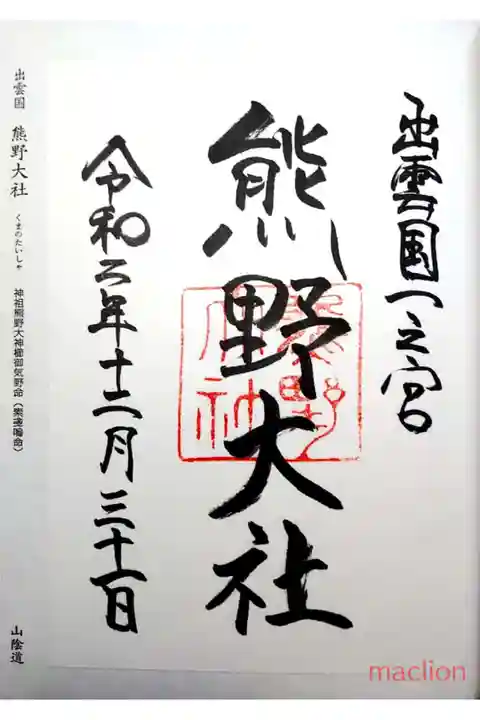 出雲国一之宮
熊野大社
令和二年十二月三十一日
出雲国 熊野大社 くまのたいしゃ 神祖熊野大神櫛御気野命（素戔嗚命） 山陰道
熊野大社
maclion